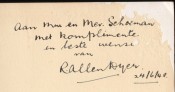 Aan Mnr en Mev. Schoeman
met komplimente
en beste wense
van
R Allen Dyer